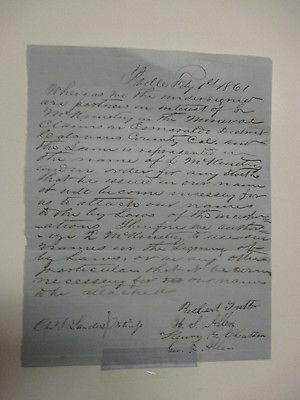 Feby 1st 1861
Whereas we the undersigned
are partners in interest of
McKinstry in the Mineral
Claims in Esmeralda District
Calaveras County Cal. and
the Same is represented in
the name of McKinstry
and in order for any
to be issued in our name
it will become necessary for
us to attach our names
to the by Laws of the incorpor
ations. Therefore we author
ize McKinstry to use our
names in the signing of
by Laws, or in any other
particular that it becomes
necessary for our names
to be attached
Robert
H. S. Allen
Henry
Geo. Allen
Chas S. Landers